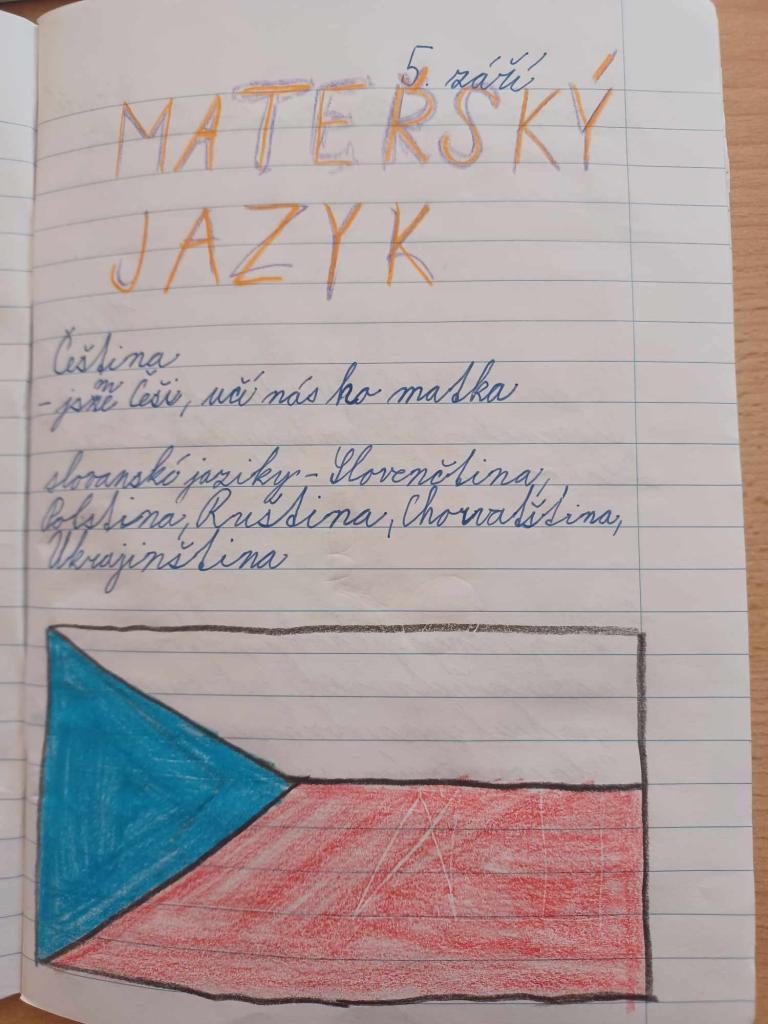 5. září
MATEŘSKÝ
JAZYK
Čeština
- jsme Češi, učí nás ho matka
slovanské jaziky - Slovenčtina,
Polština, Ruština, Chorvatština,
Ukrajinština